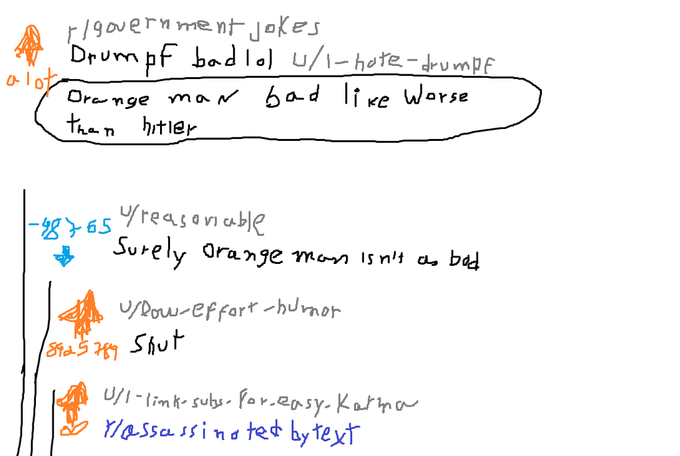 r/government jokes
Drumpf bad lol u/I-hate-drumpf
a lot
Orange man bad like worse
than hitler
-98765 u/reasonable
Surely orange man isn't as bad
u/low-effort-humor
8925789 Shut
u/I-link-subs-for-easy-karma
r/assassinatedbytext